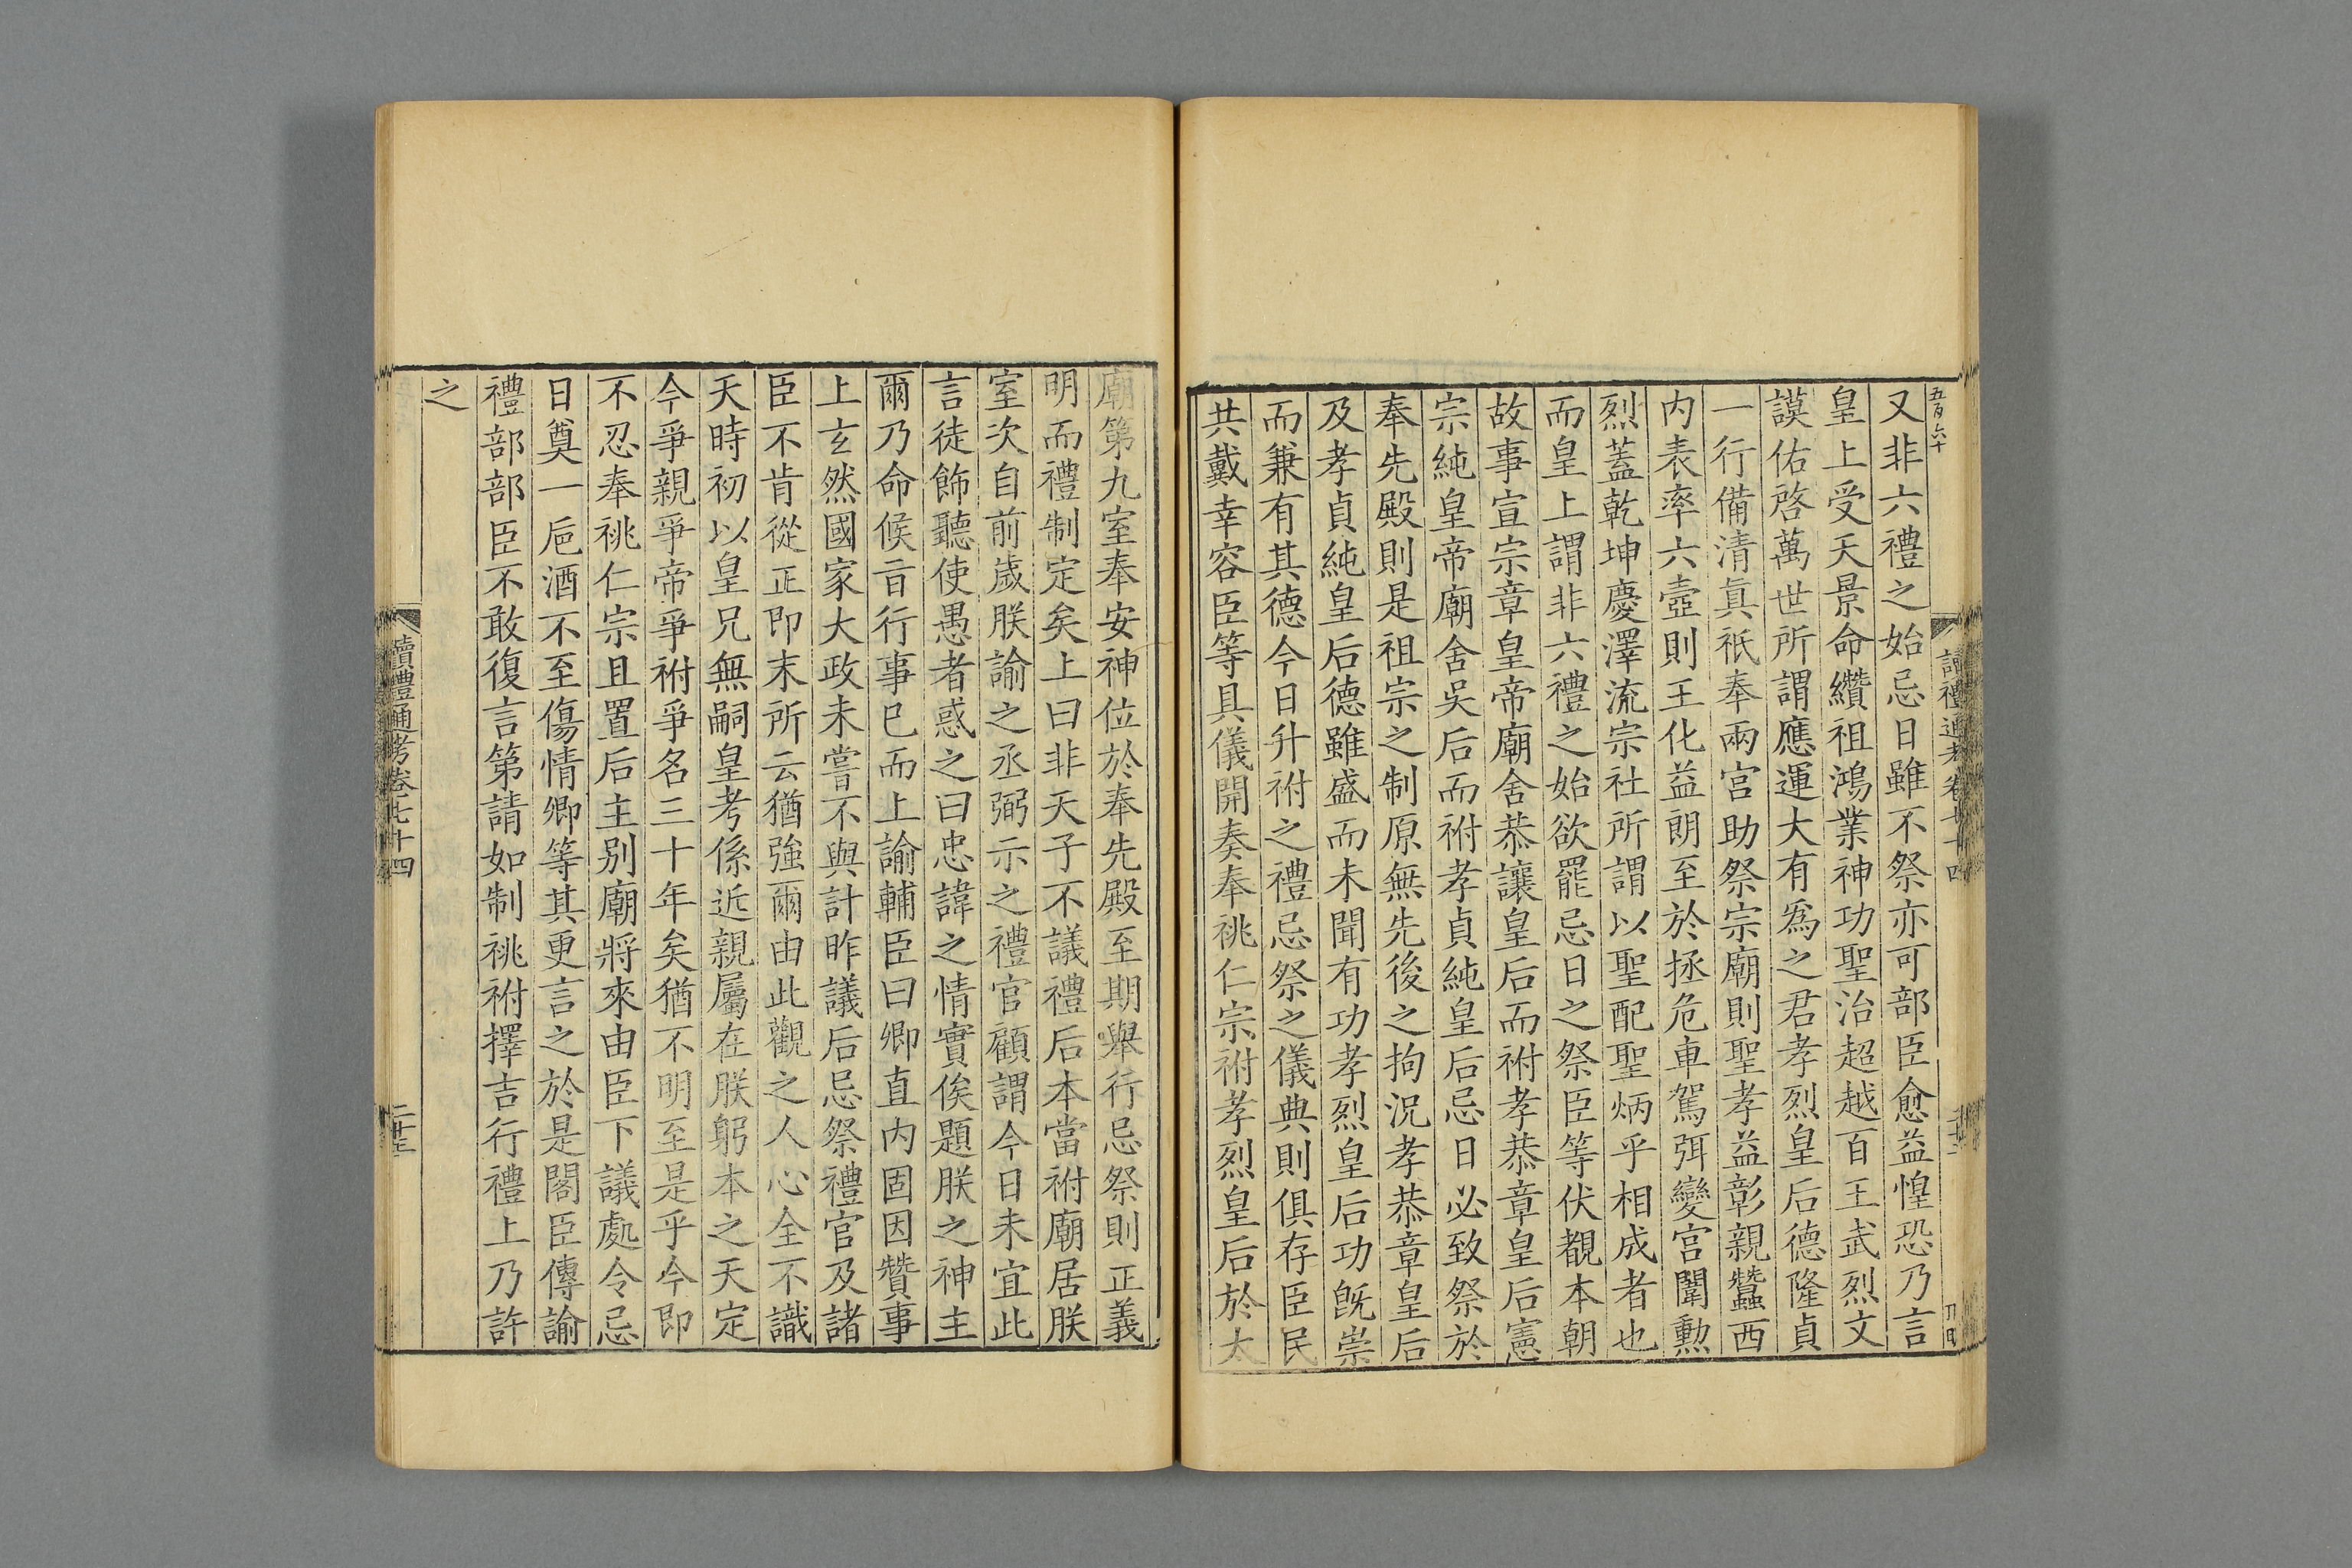 五百六十
又非六禮之始忌日雖不祭亦可部臣愈益惶恐乃言
皇上受天景命纘祖鴻業神功聖治超越百王武烈文
謨佑啓萬世所謂應運大有爲之君孝烈皇后德隆貞
一行備清眞祇奉兩宮助祭宗廟則聖孝益彰親蠶西
内表率六壼則王化益朗至於拯危車駕弭變宮闈勲
烈蓋乾坤慶澤流宗社所謂以聖配聖炳乎相成者也
而皇上謂非六禮之始欲罷忌日之祭臣等伏覩本朝
故事宣宗章皇帝廟舍恭讓皇后而祔孝恭章皇后憲
宗純皇帝廟舍吳后而祔孝貞純皇后忌日必致祭於
奉先殿則是祖宗之制原無先後之拘況孝恭章皇后
及孝貞純皇后德雖盛而未聞有功孝烈皇后功旣崇
而兼有其德今日升祔之禮忌祭之儀典則俱存臣民
共戴幸容臣等具儀開奏奉祧仁宗祔孝烈皇后於太
廟第九室奉安神位於奉先殿至期舉行忌祭則正義
明而禮制定矣上曰非天子不議禮后本當祔廟居朕
室次自前歲朕諭之丞弼示之禮官顧謂今日未宜此
言徒飾聽使愚者惑之曰忠諱之情實俟題朕之神主
爾乃命候㫖行事巳而上諭輔臣曰卿直内固因贊事
上玄然國家大政未嘗不與計昨議后忌祭禮官及諸
臣不肯從正即末所云猶強爾由此觀之人心全不識
天時初以皇兄無嗣皇考係近親屬在朕躬本之天定
今爭親爭帝爭祔爭名三十年矣猶不明至是乎今即
不忍奉祧仁宗且置后主别廟將來由臣下議處令忌
日奠一巵酒不至傷情卿等其更言之於是閣臣傳諭
禮部部臣不敢復言第請如制祧祔擇吉行禮上乃許
之
讀禮通考卷七十四